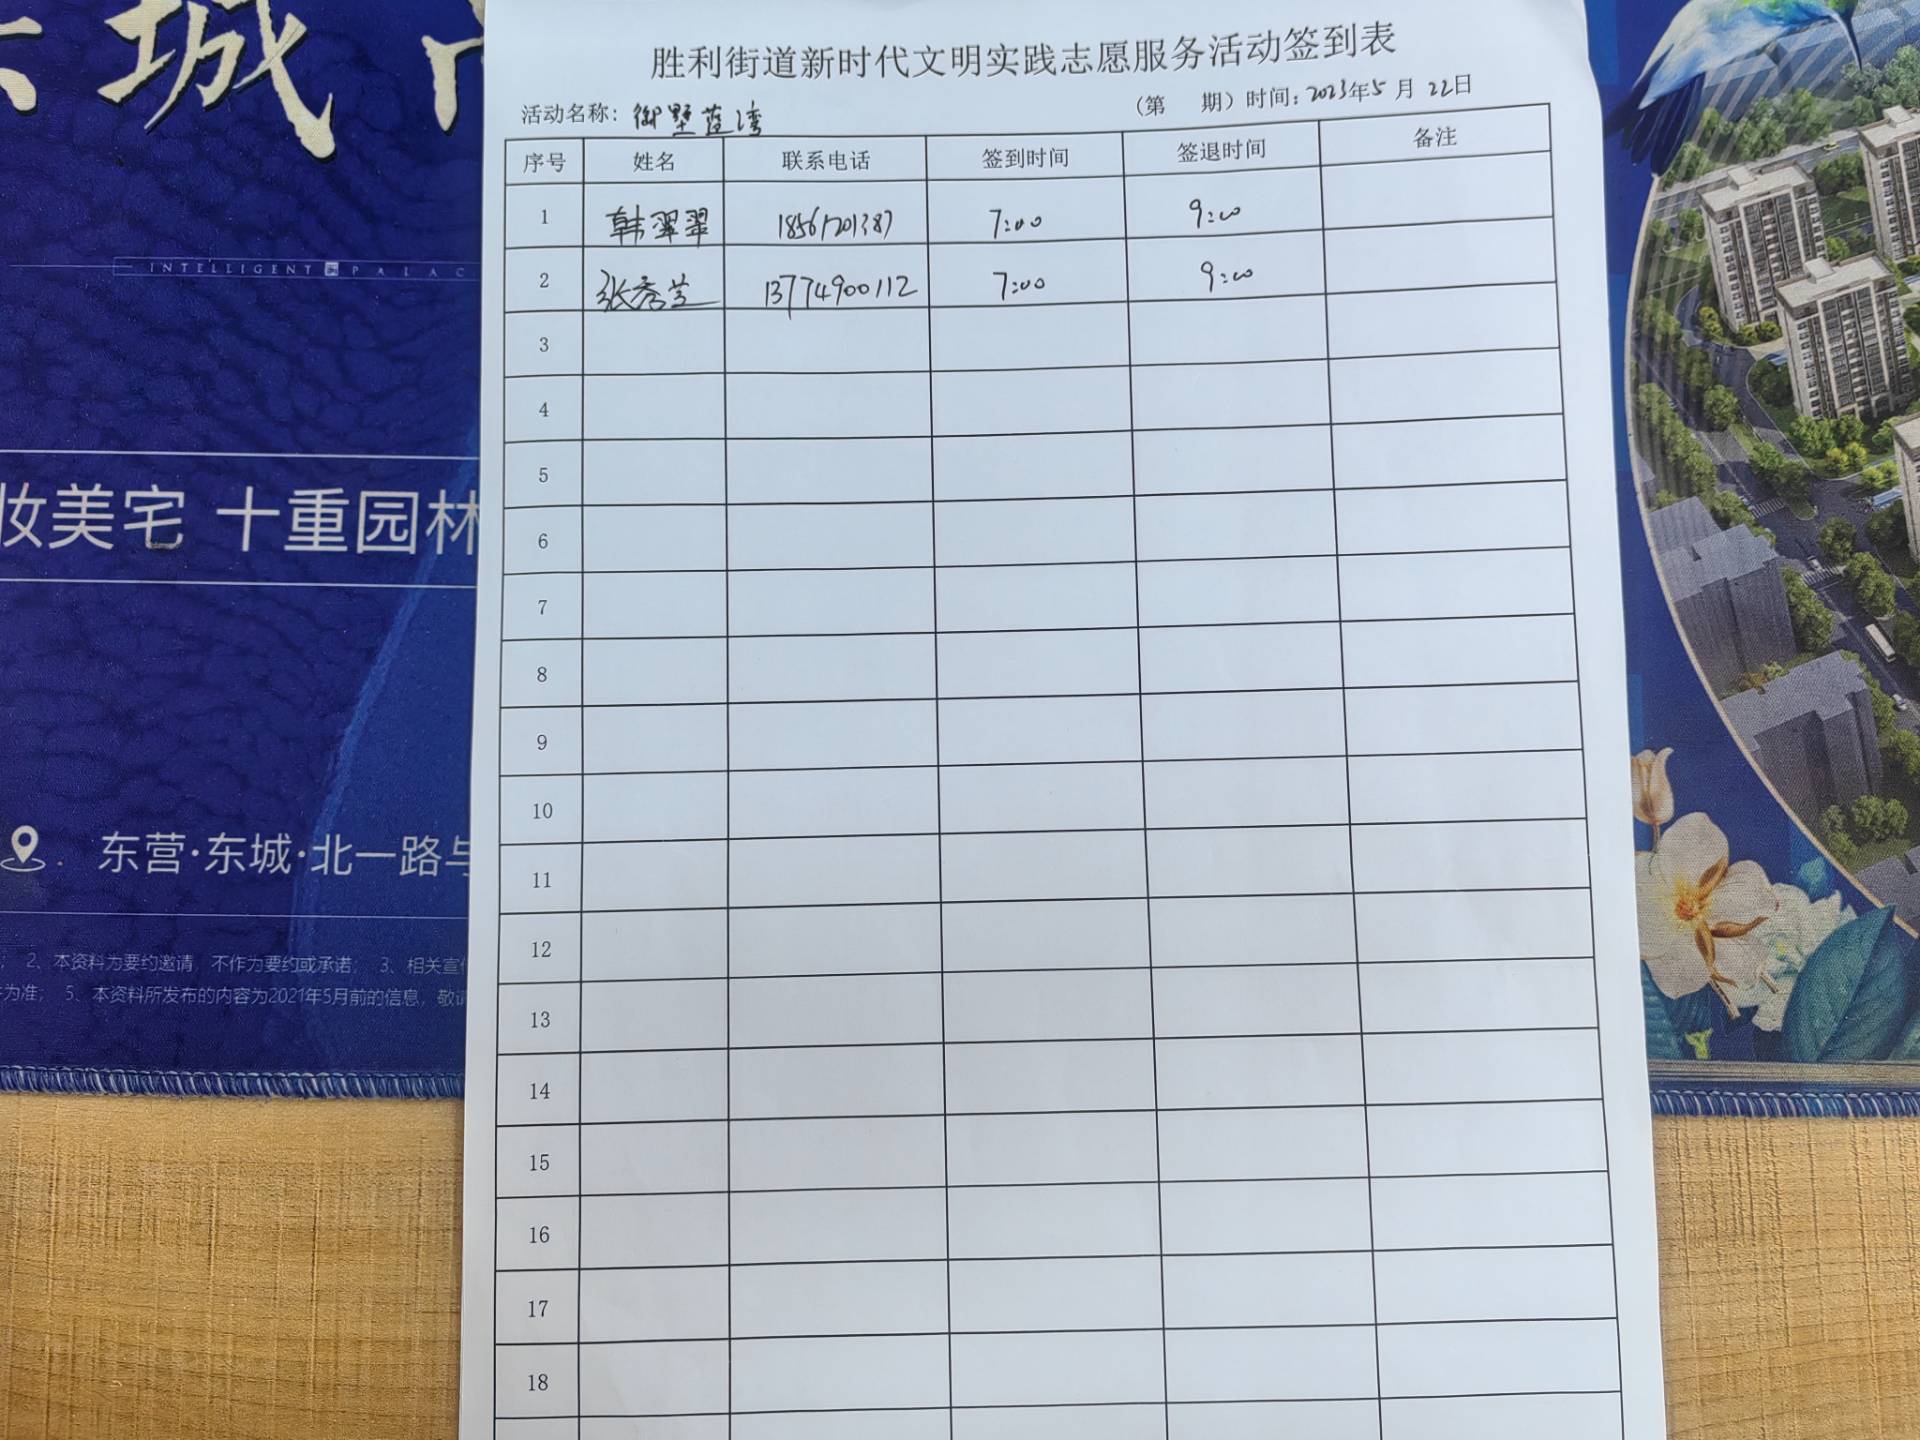 城
INTELLIGENT PALAC
妆美宅 十重园林
东营·东城·北一路与
2、本资料为要约邀请，不作为要约或承诺； 3、相关宣传
为准； 5、本资料所发布的内容为2021年5月前的信息，敬请
胜利街道新时代文明实践志愿服务活动签到表
活动名称：御墅蓝湾 （第 期）时间：2023年5月22日
序号 姓名 联系电话 签到时间 签退时间 备注
1 韩翠翠 18561201387 7:00 9:00
2 张秀兰 13774900112 7:00 9:00
3
4
5
6
7
8
9
10
11
12
13
14
15
16
17
18